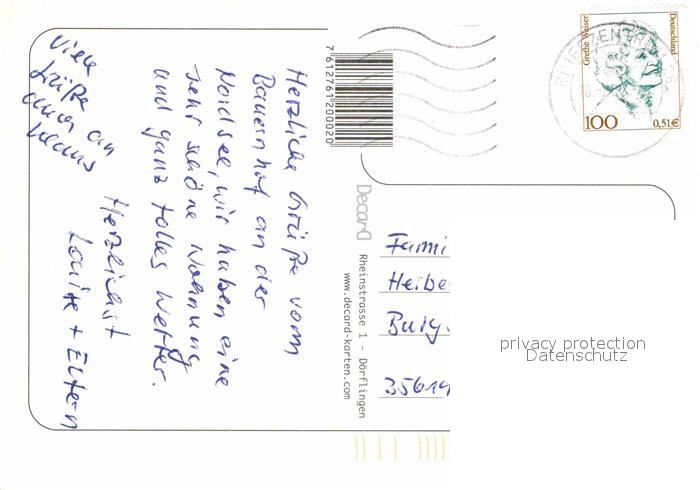 Herzliche Grüße vom
Bauernhof an der
Nordsee, wir haben eine
sehr schöne Wohnung
und ganz tolles Wetter.
Herzlichst
Louise + Eltern
Viele
Grüße
auch an
7612761200020
Decard
Rheinstrasse 1 - Dörflingen
www.decard-karten.com
Grethe Weiser
Deutschland
100
0,51€
BRIEFZENTRUM
Fami
Heibe
Burg
35614
privacy protection
Datenschutz